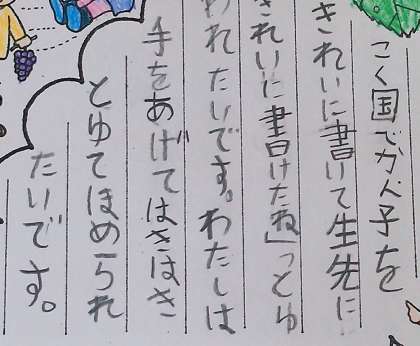 こく国でかん子を
きれいに書けて生先に
きれいに書けたね」っとゆ
われたいです。わたしは
手をあげてはきはき
とゆてほめられ
たいです。